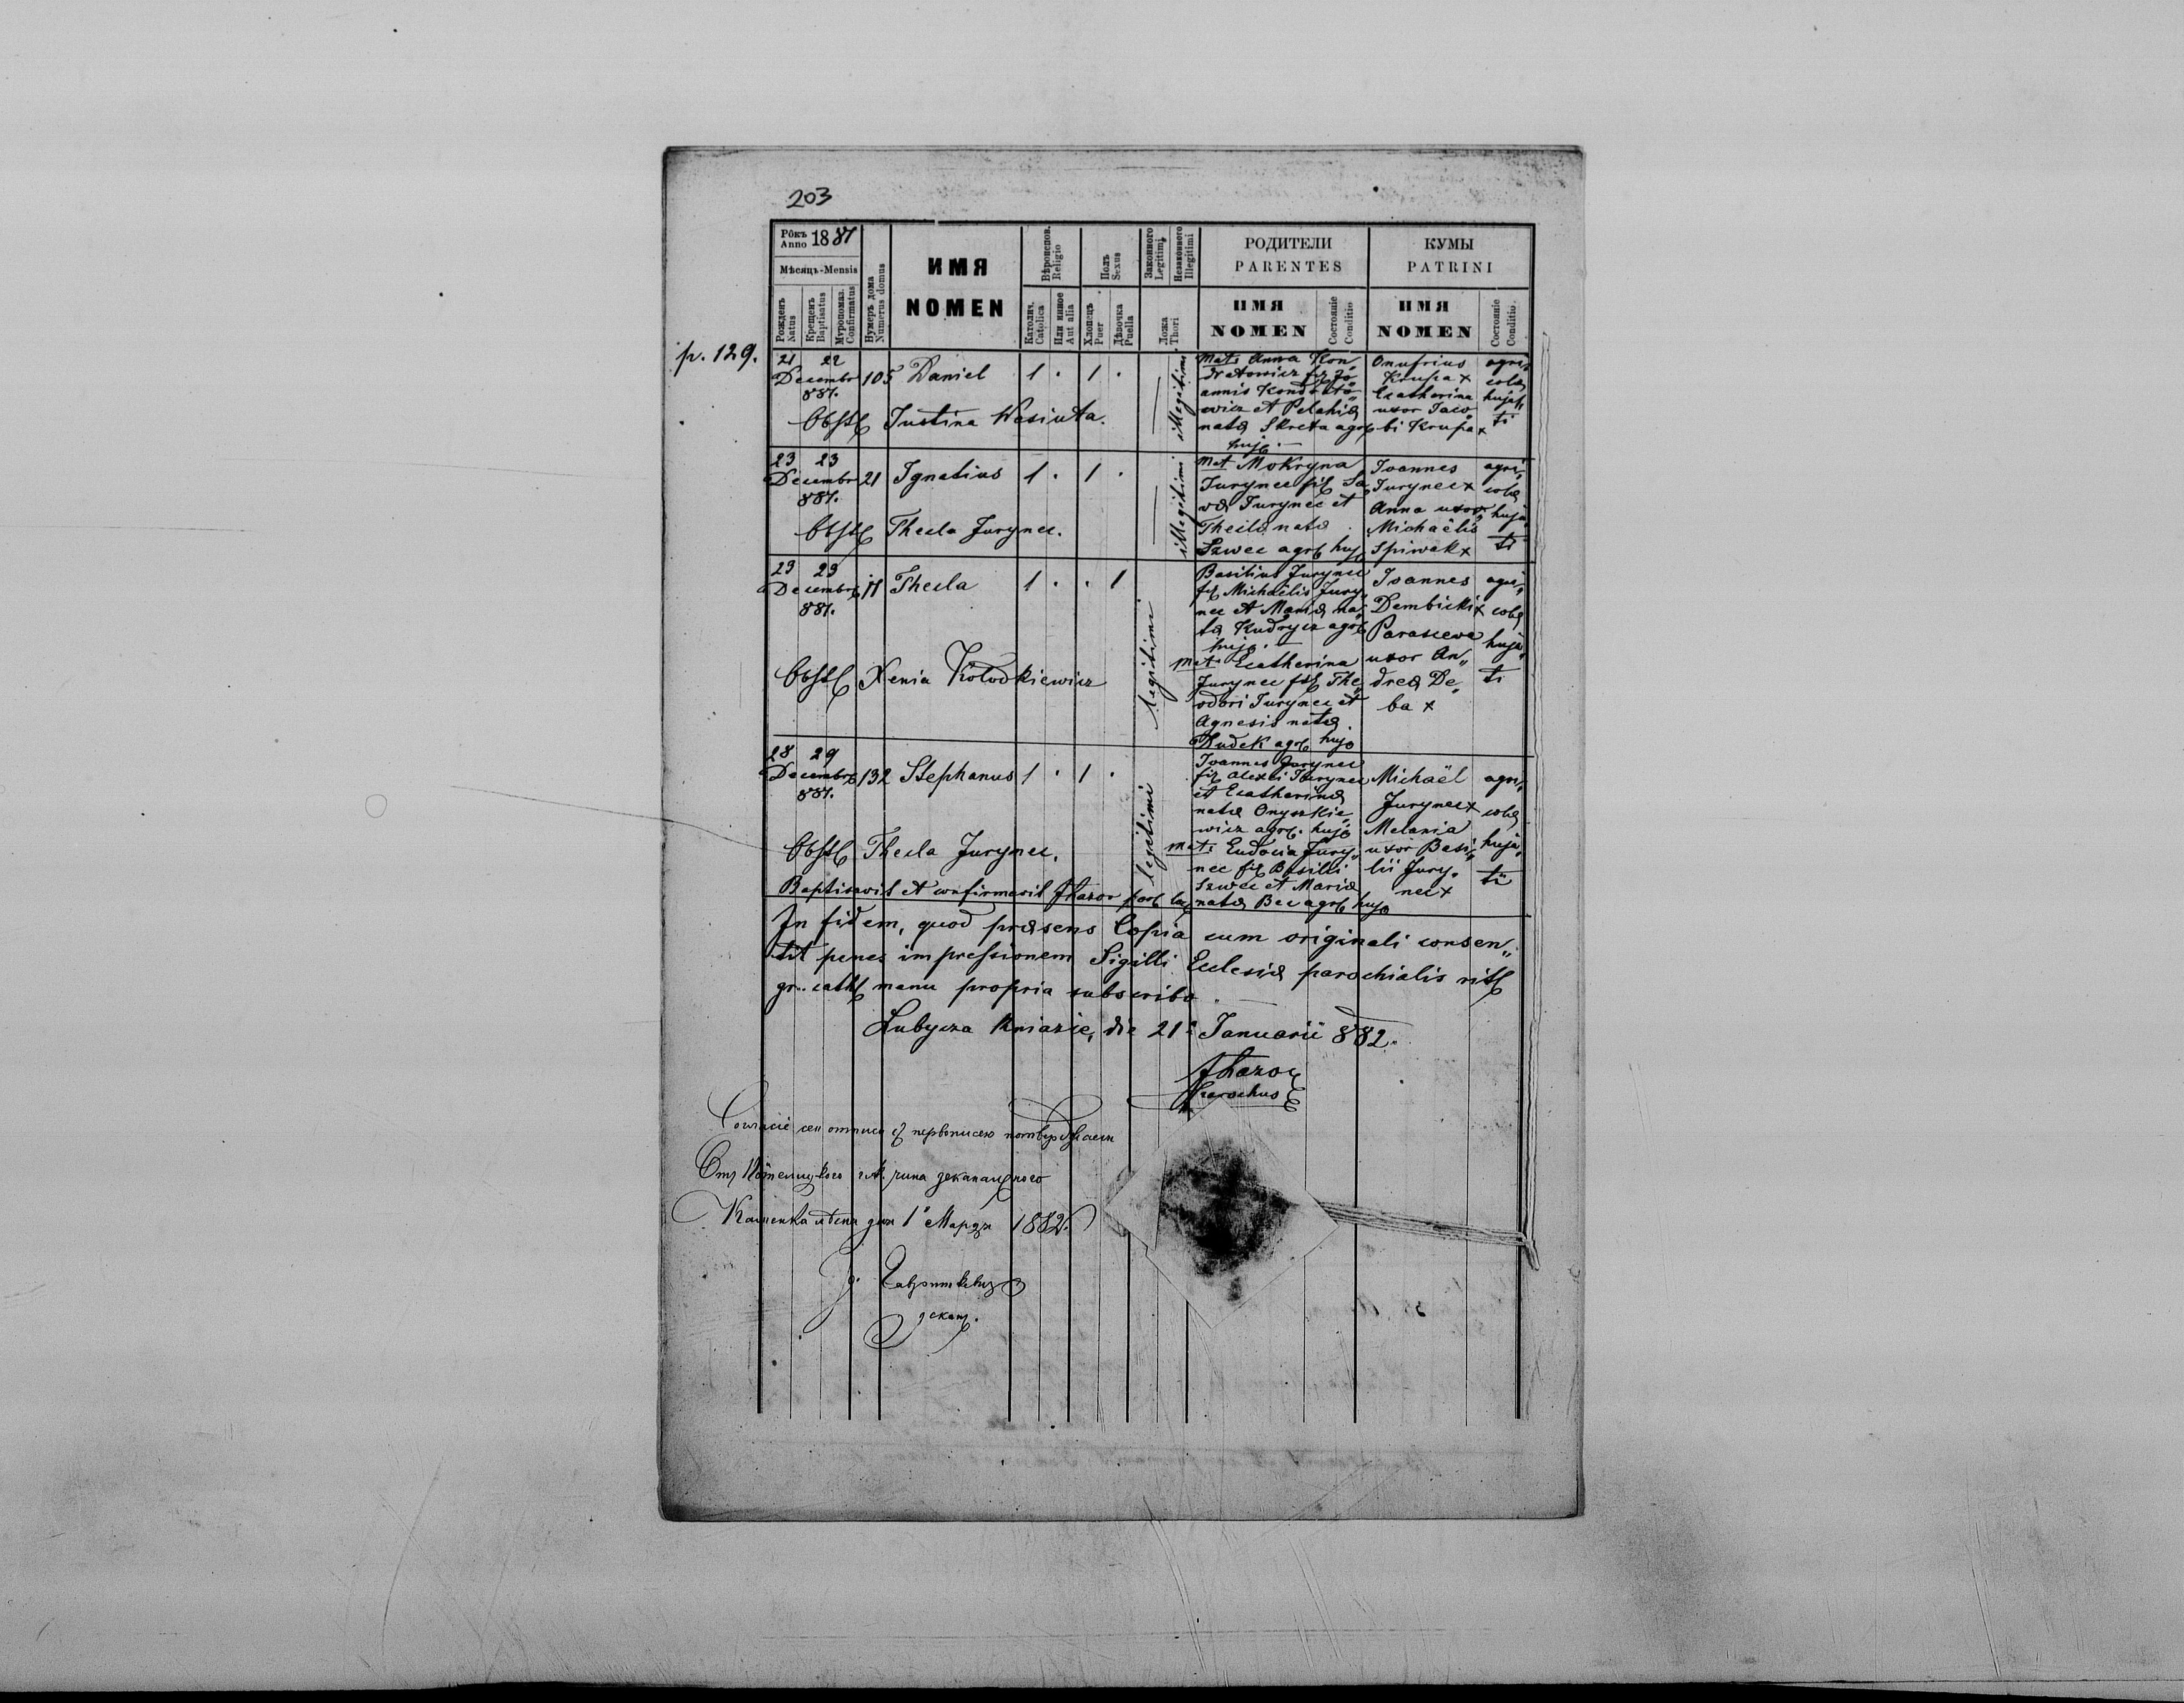 203
Рôкъ Anno 1881
Мѣсяць-Mensis
Рожденъ Natus
Крещенъ Baptisatus
Мѵропомаз. Confirmatus
Нумеръ дома Numerus domus
ИМЯ
NOMEN
Вѣроиспов. Religio
Католич. Catolica
Или инное Aut alia
Полъ Sexus
Хлопецъ Puer
Дѣвочка Puella
Законного Legitimi,
Незаконного Illegitimi
Ложа Thori
РОДИТЕЛИ
PARENTES
ИМЯ
NOMEN
Состояніе Conditio
КУМЫ
PATRINI
ИМЯ
NOMEN
Состояніе Conditio
p. 129.
21 22
Decembr 105 Daniel 1 . 1 .
881.
Obst Justina Wasiuta.
illegitimi
Mat: Anna Kon„
dratowicz fil Jo„
annis Kondrato„
wicz et Pelahiæ
natæ Skreta agr
huj.
Onufrius
Krupa x
Ecatherina
uxor Jaco„
bi Krupa x
agri„
colæ
hujat„
ti
23 23
Decembr 21 Ignatius 1 . 1 .
881.
Obst Thecla Jurynec.
illegitimi
Mat Mokryna
Jurynec fil Sa„
væ Jurynec et
Theclæ natæ
Szwec agr huj
Joannes
Jurynec x
Anna uxor
Michaëlis
Spiwak x
agri„
colæ
huja„
ti
23 23
Decembr 11 Thecla 1 . . 1
881.
Obst Xenia Kołodkiewicz
legitimi
Basilius Jurynec
fil Michaelis Jury„
nec et Mariæ na„
tæ Kudrycz agr
hujo.
Mat: Ecatherina
Jurynec fil The„
odori Jurynec et
Agnesis natæ
Dudek agr hujo
Joannes
Dembicki x
Parascewa
uxor An„
dreæ De„
ba x
agri„
colæ
huja„
ti
28 29
Decembr 132 Stephanus 1 . 1 .
881.
Obst Thecla Jurynec.
legitimi
Joannes Jurynec
fil Alexii Jurynec
et Ecatherinæ
natæ Onyszkie„
wicz agr. hujo
Mat: Eudocia Jury„
nec fil Basilii
Szwec et Mariæ
natæ Bec agr hujo
Michaël
Jurynec x
Melania
uxor Basi„
lii Jury„
nec x
agri„
colæ
huja„
ti
Baptisavit et confirmavit
In fidem, quod præsens Copia cum originali consen„
tit penes impressionem Sigilli Ecclesiæ parochialis rit
gr. cath manu propria subscribo.
Lubycza Kniazie, die 21: Januarii 882.
Parochus
Согласіе сеи отписи съ первописею потверджаеся
Отъ гк. чина деканального
Каменка лѣсна дня 1° Марця 1882.
декан.